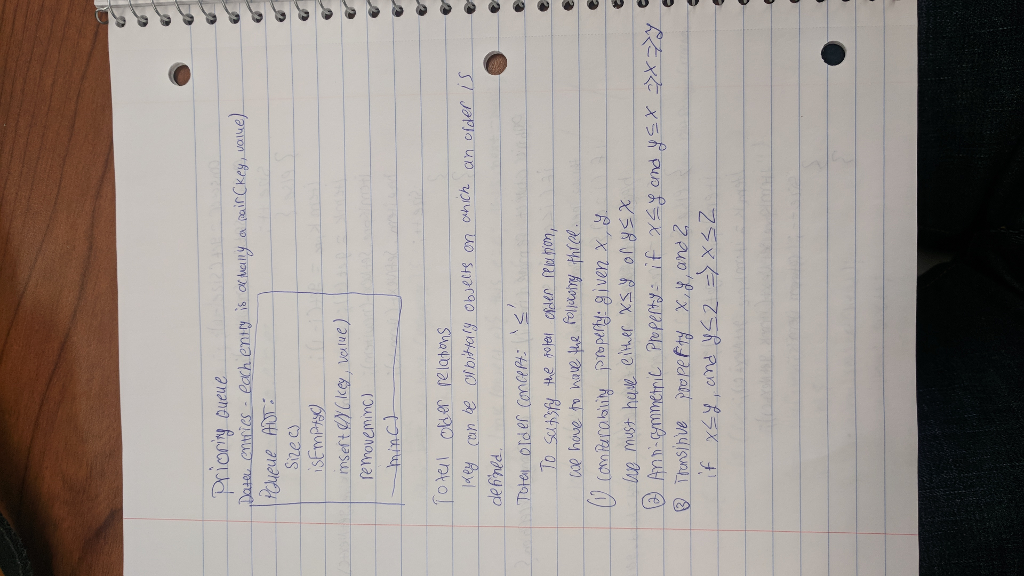 Priority Queue
Data entries - each entry is actually a pair(key, value)
PQueue ADT:
Size()
isEmpty()
insert(key, value)
removemin()
min()
Total order relations
key can be arbitrary objects on which an order is
defined.
Total order concept: '≤'
To satisfy the total order relation,
we have to have the following three.
(1) Comparability property: given x, y
we must have either x≤y or y≤x
② Anti-symmetric property: if x≤y and y≤x ⇒ x⇒y
③ Transitive property x, y, and z
if x≤y, and y≤z ⇒ x≤z